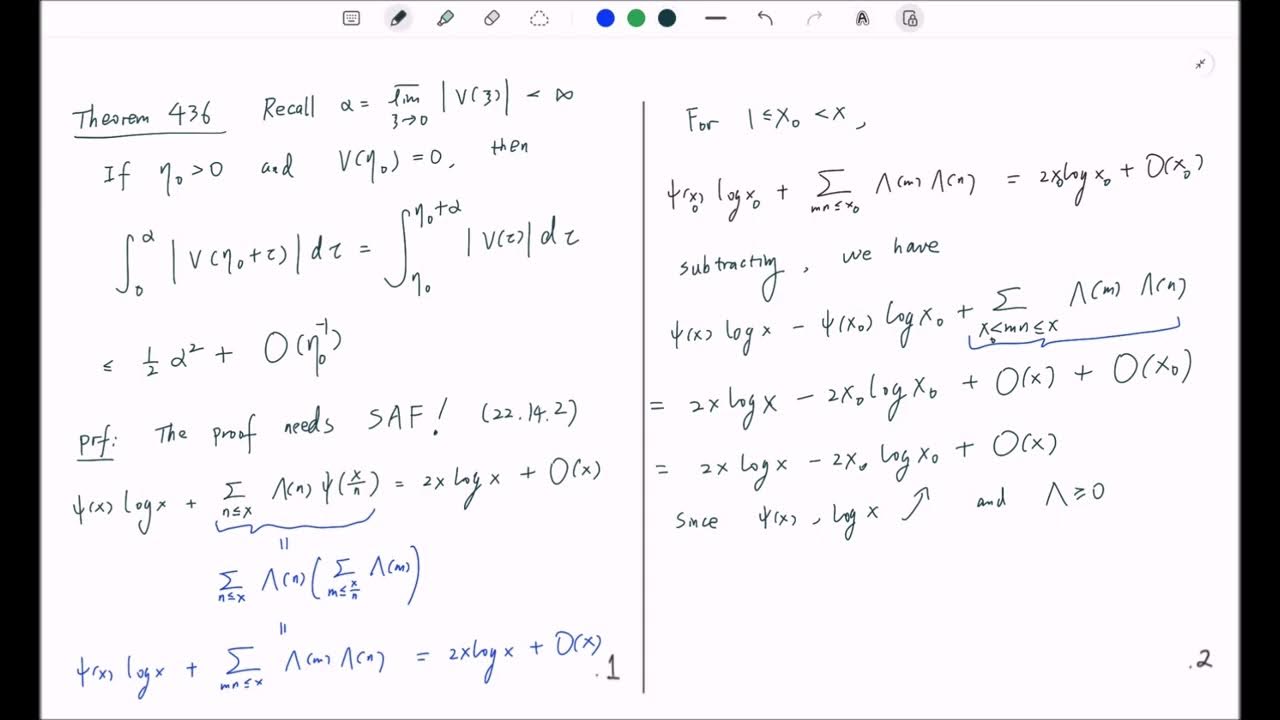 Theorem 436 Recall α = \overline{lim}_{ʒ→0} |V(ʒ)| < ∞
If η₀ > 0 and V(η₀) = 0, then
∫_0^α |V(η₀+τ)| dτ = ∫_{η₀}^{η₀+α} |V(τ)| dτ
≤ ½ α² + O(η₀^{-1})
prf: The proof needs SAF! (22.14.2)
ψ(x) log x + ∑_{n≤x} Λ(n) ψ(x/n) = 2x log x + O(x)
||
∑_{n≤x} Λ(n) (∑_{m≤x/n} Λ(m))
||
ψ(x) log x + ∑_{mn≤x} Λ(m) Λ(n) = 2x log x + O(x)
.1
For 1 ≤ x₀ < x,
ψ(x₀) log x₀ + ∑_{mn≤x₀} Λ(m) Λ(n) = 2x₀ log x₀ + O(x₀)
subtracting, we have
ψ(x) log x − ψ(x₀) log x₀ + ∑_{x₀<mn≤x} Λ(m) Λ(n)
= 2x log x − 2x₀ log x₀ + O(x) + O(x₀)
= 2x log x − 2x₀ log x₀ + O(x)
Since ψ(x), log x ↗ and Λ ≥ 0
.2